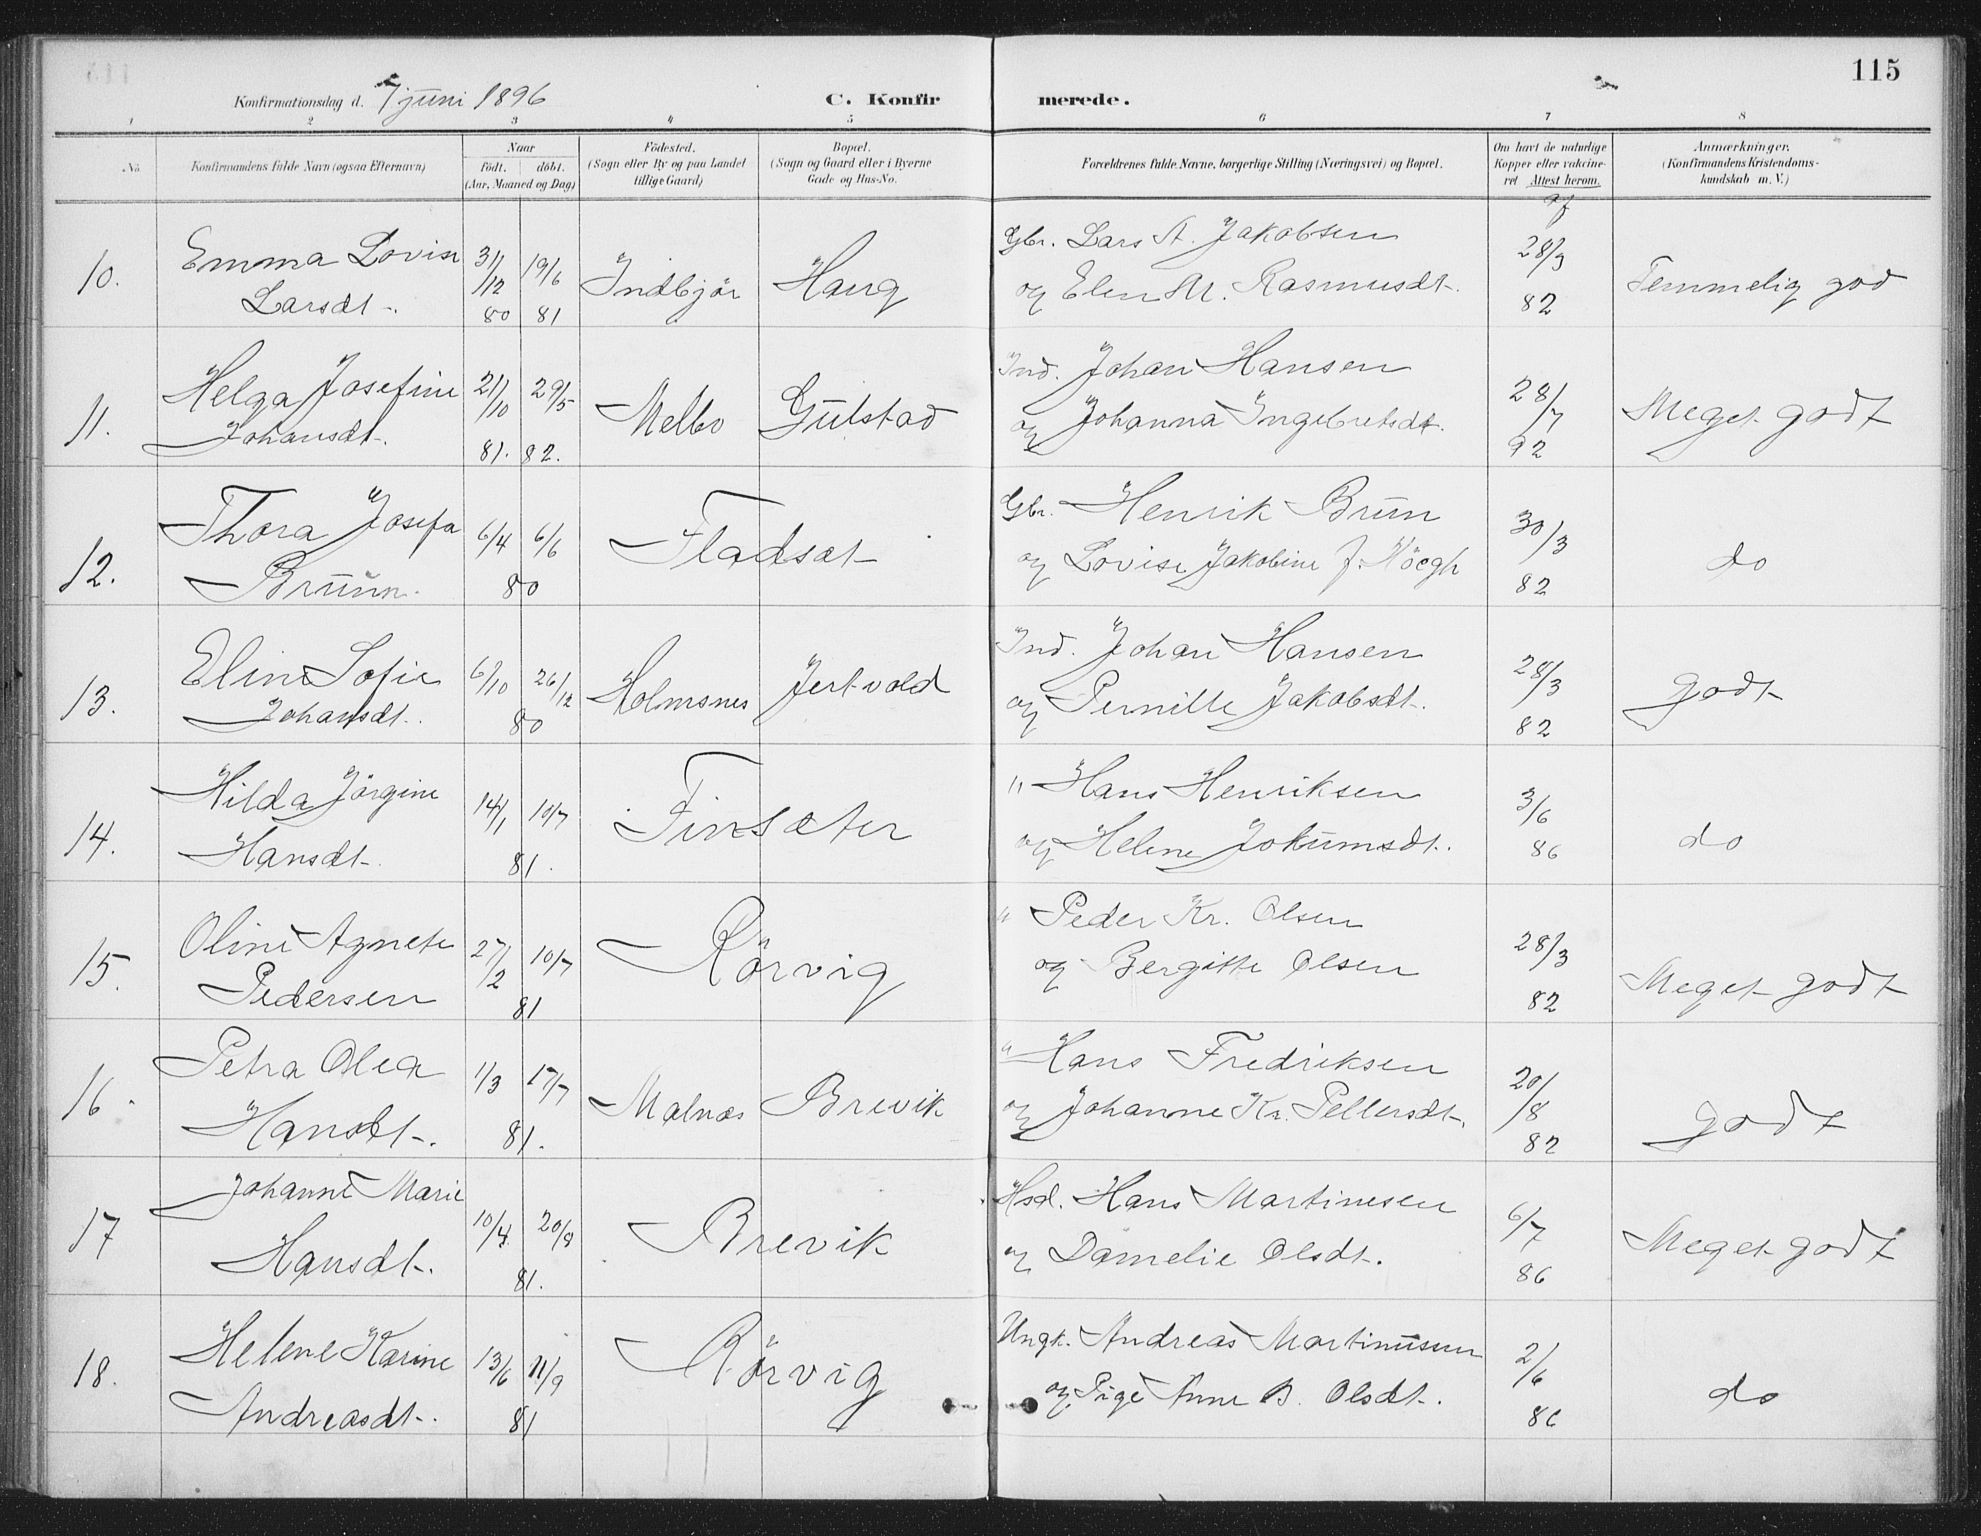 115
Konfirmationsdag d. 7 juni 1896
C. Konfirmerede.
1 2 3 4 5 6 7 8
No
Konfirmandens fulde Navn (ogsaa Efternavn)
Naar
födt. döbt.
(Aar, Maaned og Dag)
Födested.
(Sogn eller By og paa Landet
tillige Gaard)
Bopæl.
(Sogn og Gaard eller i Byerne
Gade og Hus-No.
Forældrenes fulde Navne, borgerlige Stilling (Næringsvei) og Bopæl.
Om havt de naturlige
Kopper eller vakcine-
ret Attest herom.
af
Anmærkninger.
(Konfirmandens Kristendoms-
kundskab m. V.)
10. Emma Lovise 31/12 19/6 Indbjör Haug Gbr. Lars A. Jakobsen 28/3 Temmelig god
Larsdt. 80 81 og Elen M. Rasmusdt. 82
11. Helga Josefine 21/10 29/5 Melbo Gulstad Ind. Johan Hansen 28/7 Meget godt
Johansdt. 81. 82. og Johanna Ingebretsdt. 92
12. Thora Josefa 6/4 6/6 Fladsæt Gbr. Henrik Bruun 30/3 do
Bruun. 80 og Lovise Jakobine f. Höegh 82
13. Eline Sofie 6/10 26/12 Holmsnes Jertvold Ind. Johan Hansen 28/3 godt
Johansdt. 80 og Pernille Jakobsdt. 82
14. Hilda Jörgine 14/1 10/7 Finsæter " Hans Henriksen 3/6 do
Hansdt. 81. og Helene Jokumsdt. 86
15. Oline Agnete 27/2 10/7 Rörvig " Peder Kr. Olsen 28/3 Meget godt
Pedersen 81 og Bergitte Olsen 82
16. Petra Olea 1/3 17/7 Malnæs Brevik " Hans Fredriksen 20/8 godt
Hansdt. 81. og Johanne Kr. Pellersdt. 82
17 Johanne Marie 10/4 20/8 Brevik Hsd. Hans Martinesen 6/7 Meget godt
Hansdt. 81. og Damelie Olsdt. 86
18. Helene Karine 13/6 11/9 Rörvig Ungk. Andreas Martinusen 2/6 do
Andreasdt. 81 og Pige Anne B. Olsdt. 86